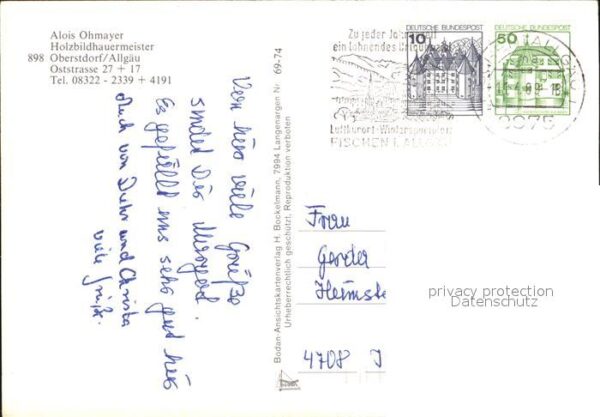 Alois Ohmayer
Holzbildhauermeister
898 Oberstdorf/Allgäu
Oststrasse 27 + 17
Tel. 08322 - 2339 + 4191
Von hier viele Grüße
sendet Dir
Es gefällt uns sehr gut hier
Auch von Dieter und Christa
viele Grüße.
Bodan-Ansichtskartenverlag H. Bockelmann, 7994 Langenargen Nr. 69-74
Urheberrechtlich geschützt, Reproduktion verboten
Zu jeder Jahreszeit
ein lohnendes Urlaubsziel
Luftkurort-Wintersportplatz
FISCHEN I. ALLGÄU
DEUTSCHE BUNDESPOST
10
DEUTSCHE BUNDESPOST
50
8975
Frau
Gerda
Heimste
4708
privacy protection
Datenschutz